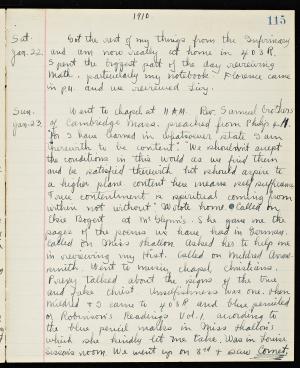 1910
115
Sat.
Jan. 22.
Got the rest of my things from the Infirmary
and am now really at home in 40 S R.
Spent the biggest part of the day reviewing
Math. particularly my notebook. Florence came
in P.M. and we reviewed Livy.
Sun.
Jan. 23.
Went to chapel at 11 A.M. Rev. Samuel Crothers
of Cambridge Mass. preached from Philip 4:11
"For I have learned in whatsoever state I am
therewith to be content." We shouldn't accept
the conditions in this world as we find them
and be satisfied therewith but should aspire to
a higher plane content here means self sufficiency
True contentment is spiritual coming from
within not without. Wrote home. Called on
Elsie Bogert at Mc Glynn's. She gave me the
pages of the poems we have had in German.
Called on Miss Hallon asked her to help me
in reviewing my Hist. Called on Mildred
Went to music, chapel, Christians.
Prexy talked about the signs of the true
and false Christ Unselfishness was one. Then
Mildred & I came to 40 S R and blue penciled
Robinson's Readings Vol. 1. according to
the blue pencil marks in Miss Hallon's
which she kindly let me take. Was in Louise
room. We went up on 3rd & saw Comet.